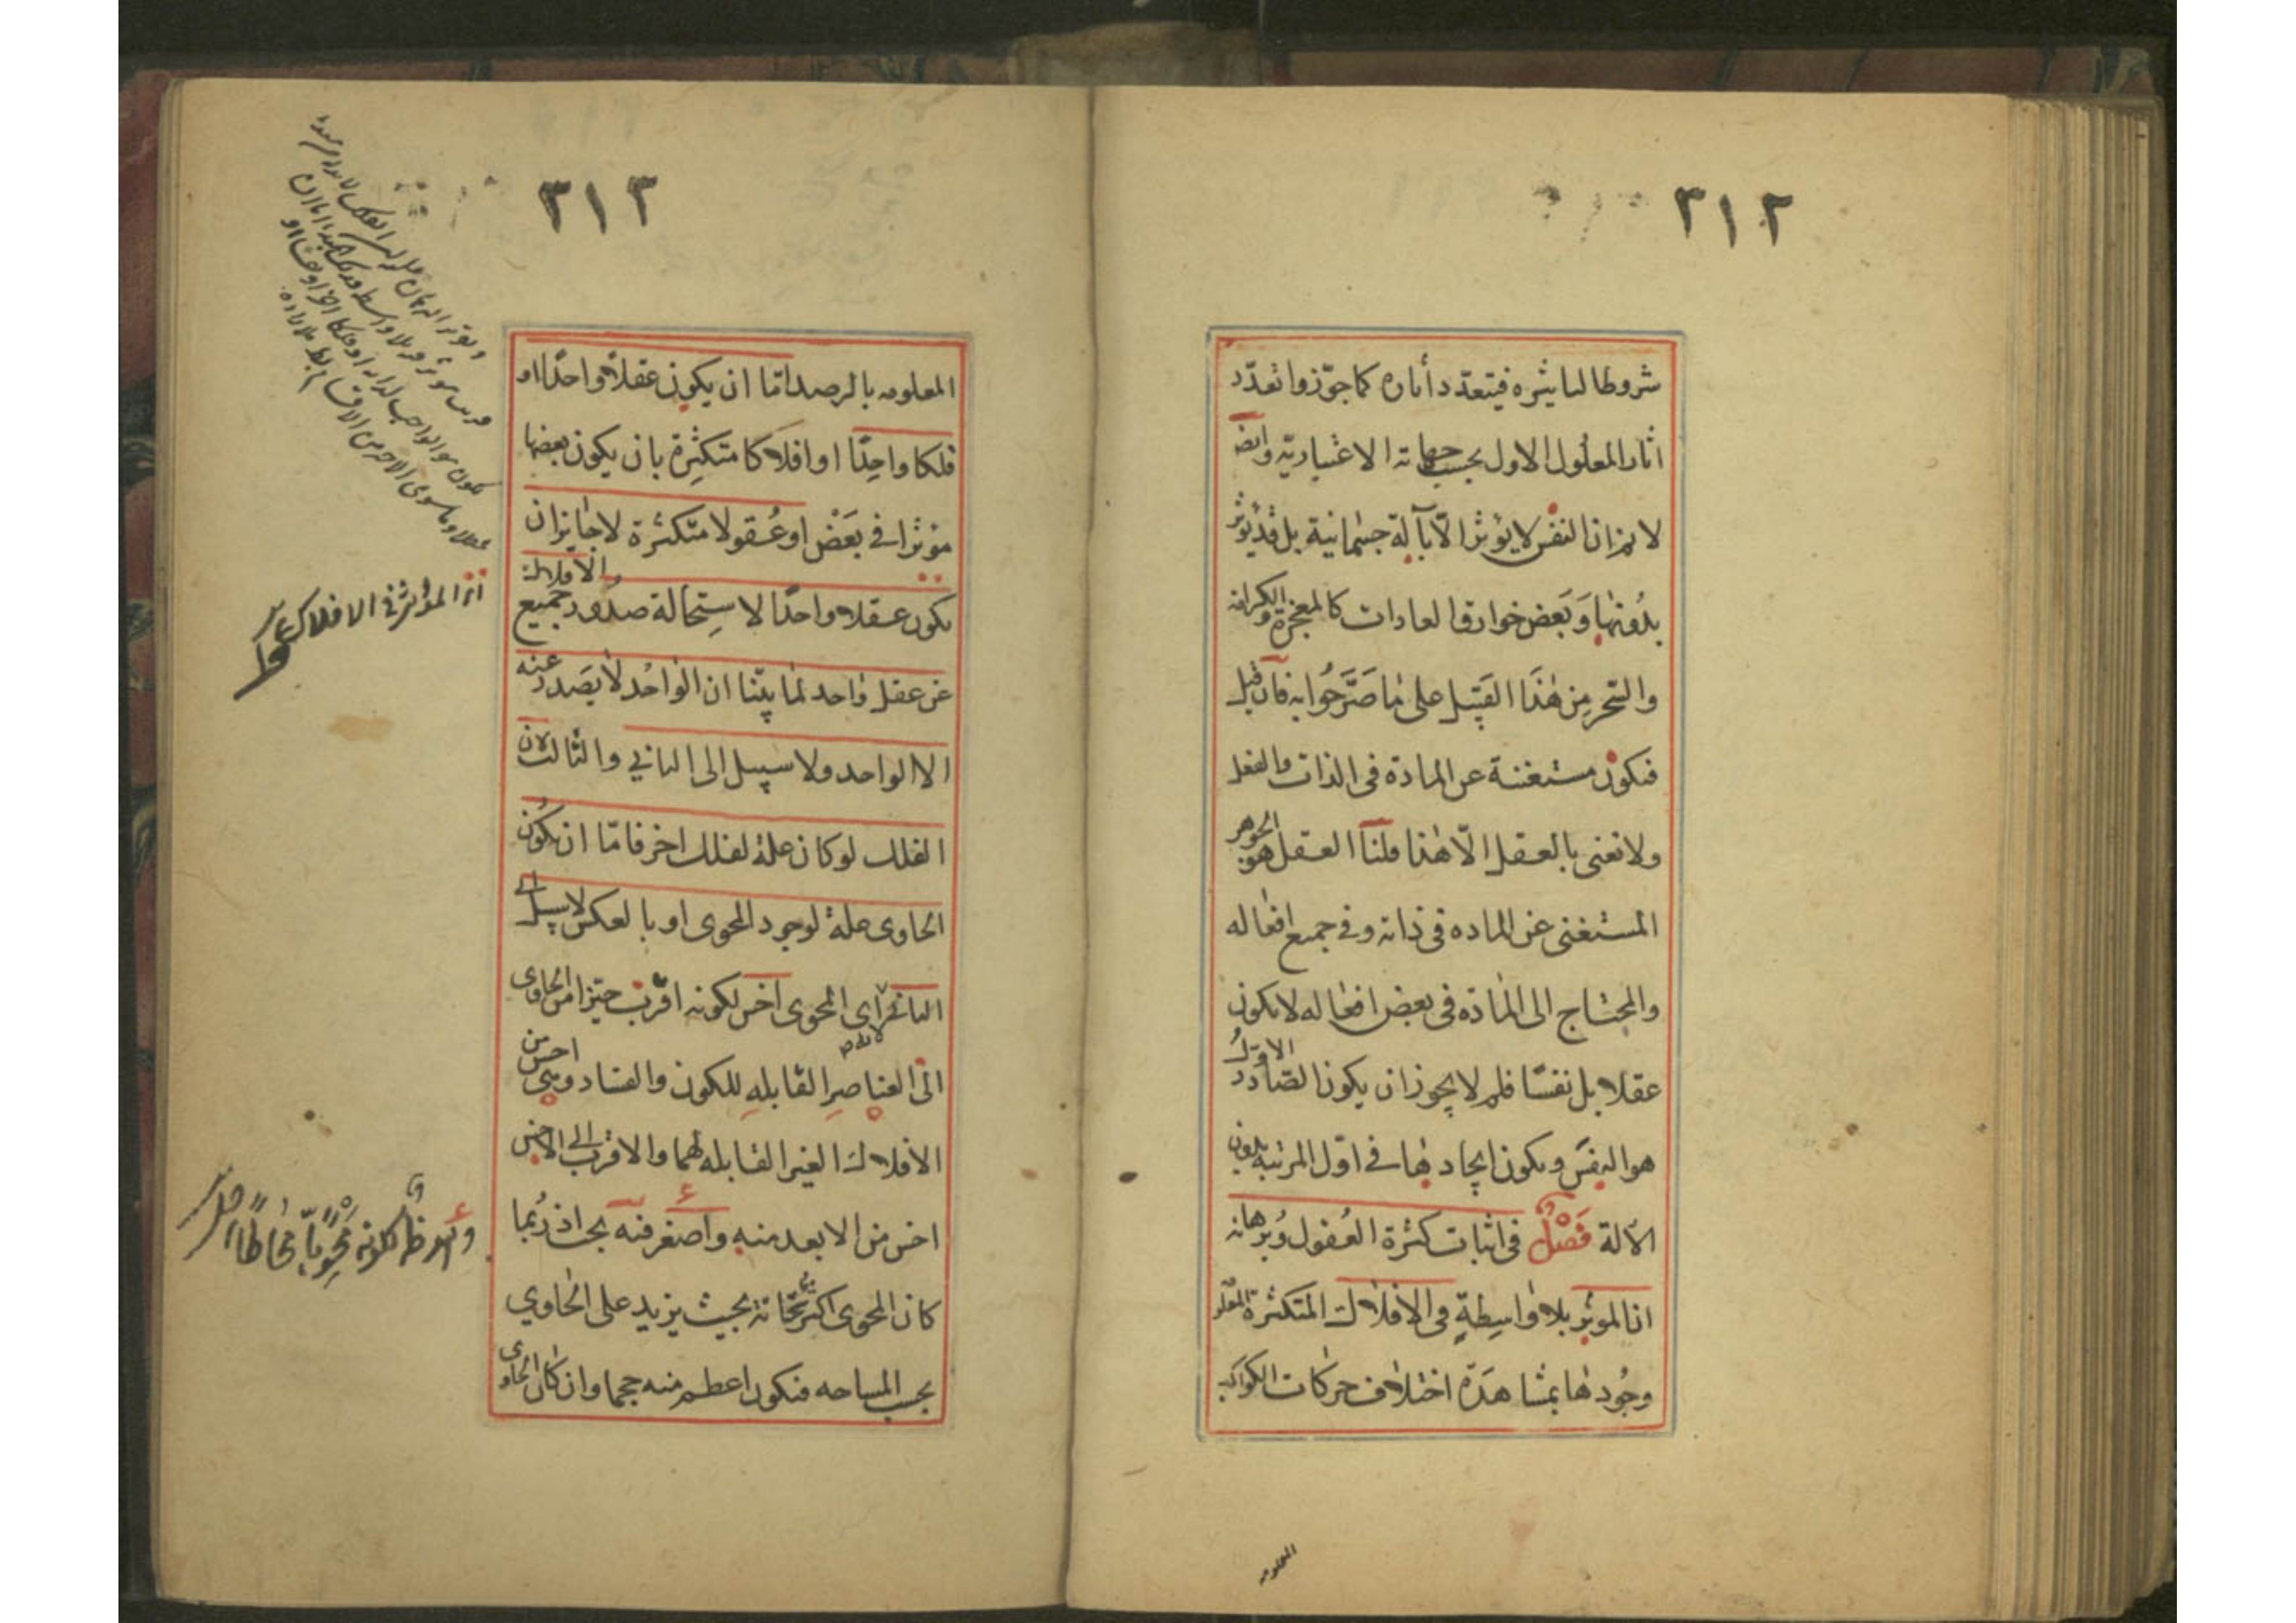 ٣١٢
شروطا لتاثيره فيتعدد أثاره كما جوّزوا تعدّد
اثار المعلول الاول بحسب جهاته الاعتباريّه وايضا
لانم ان النفس لا يؤثر الّا بآلة جسمانية بل قد يؤثر
بدونها وَبَعض خوارق العادات كالمعجزة والكرامة
والسّحر مِن هٰذَا القَبِيل على مٰا صَرَّحُوا به فان قيل
فتكون مستغنية عن المادة فى الذات والفعل
ولا نعنى بالعقل الّا هٰذا قلنا العقل هو الجوهر
المستغنى عن الماده فى ذاته وفى جميع افعاله
والمحتاج الى المٰادّه فى بعض افعاله لا يكون
عقلا بل نفسًا فلم لا يجوز ان يكون الصّادر الاوّل
هو النفسَ ويكون ايجادها فى اوّل المرتبة بدون
الآلة فَصْلٌ فى اثبات كثرة العُقول وُبرهانه
ان المؤثر بلا وٰاسِطةٍ فى الافلاك المتكثرة المعلو
وجُودها بمشاهَدَة اختلاف حركات الكواكب
المعلومه
٣١٣
المعلومه بالرصد امّا ان يكون عقلاً واحدًا او
فلكا واحِدًا او افلاكا متكثِرة بان يكون بعضها
مؤثرا فى بَعَضْ او عُقولا متكثرة لا جٰايز ان
يكون عقلا واحدًا لاستِحالة صدور جميع الافلاك
عن عقل وٰاحد لمٰا بيّنا ان الوٰاحُد لا يَصدر عنه
الا الواحد ولا سبيل الى الثاني والثالث لان
الفلك لو كان علة لفلك اخر فامّا ان يكُون
الحاوى علة لوجود المحوى او بالعكس لا سبيل الى
الثانى لان المحوى اخس لكونه اقرب حيّزا من الحاوى
الى العناصرِ القابلهِ للكون والفساد وهى اخس من
الافلاك الغير القابله لهما والاقرب الى الاخس
اخس من الابعد منه واصغر فنه بحث اذ رُبما
كان المحوى اكثر ثخانة بحيث يزيد على الحٰاوي
بحسب المساحه فتكون اعظم منه حجما وان كان الحاوى
ان المؤثر فى الافلاك